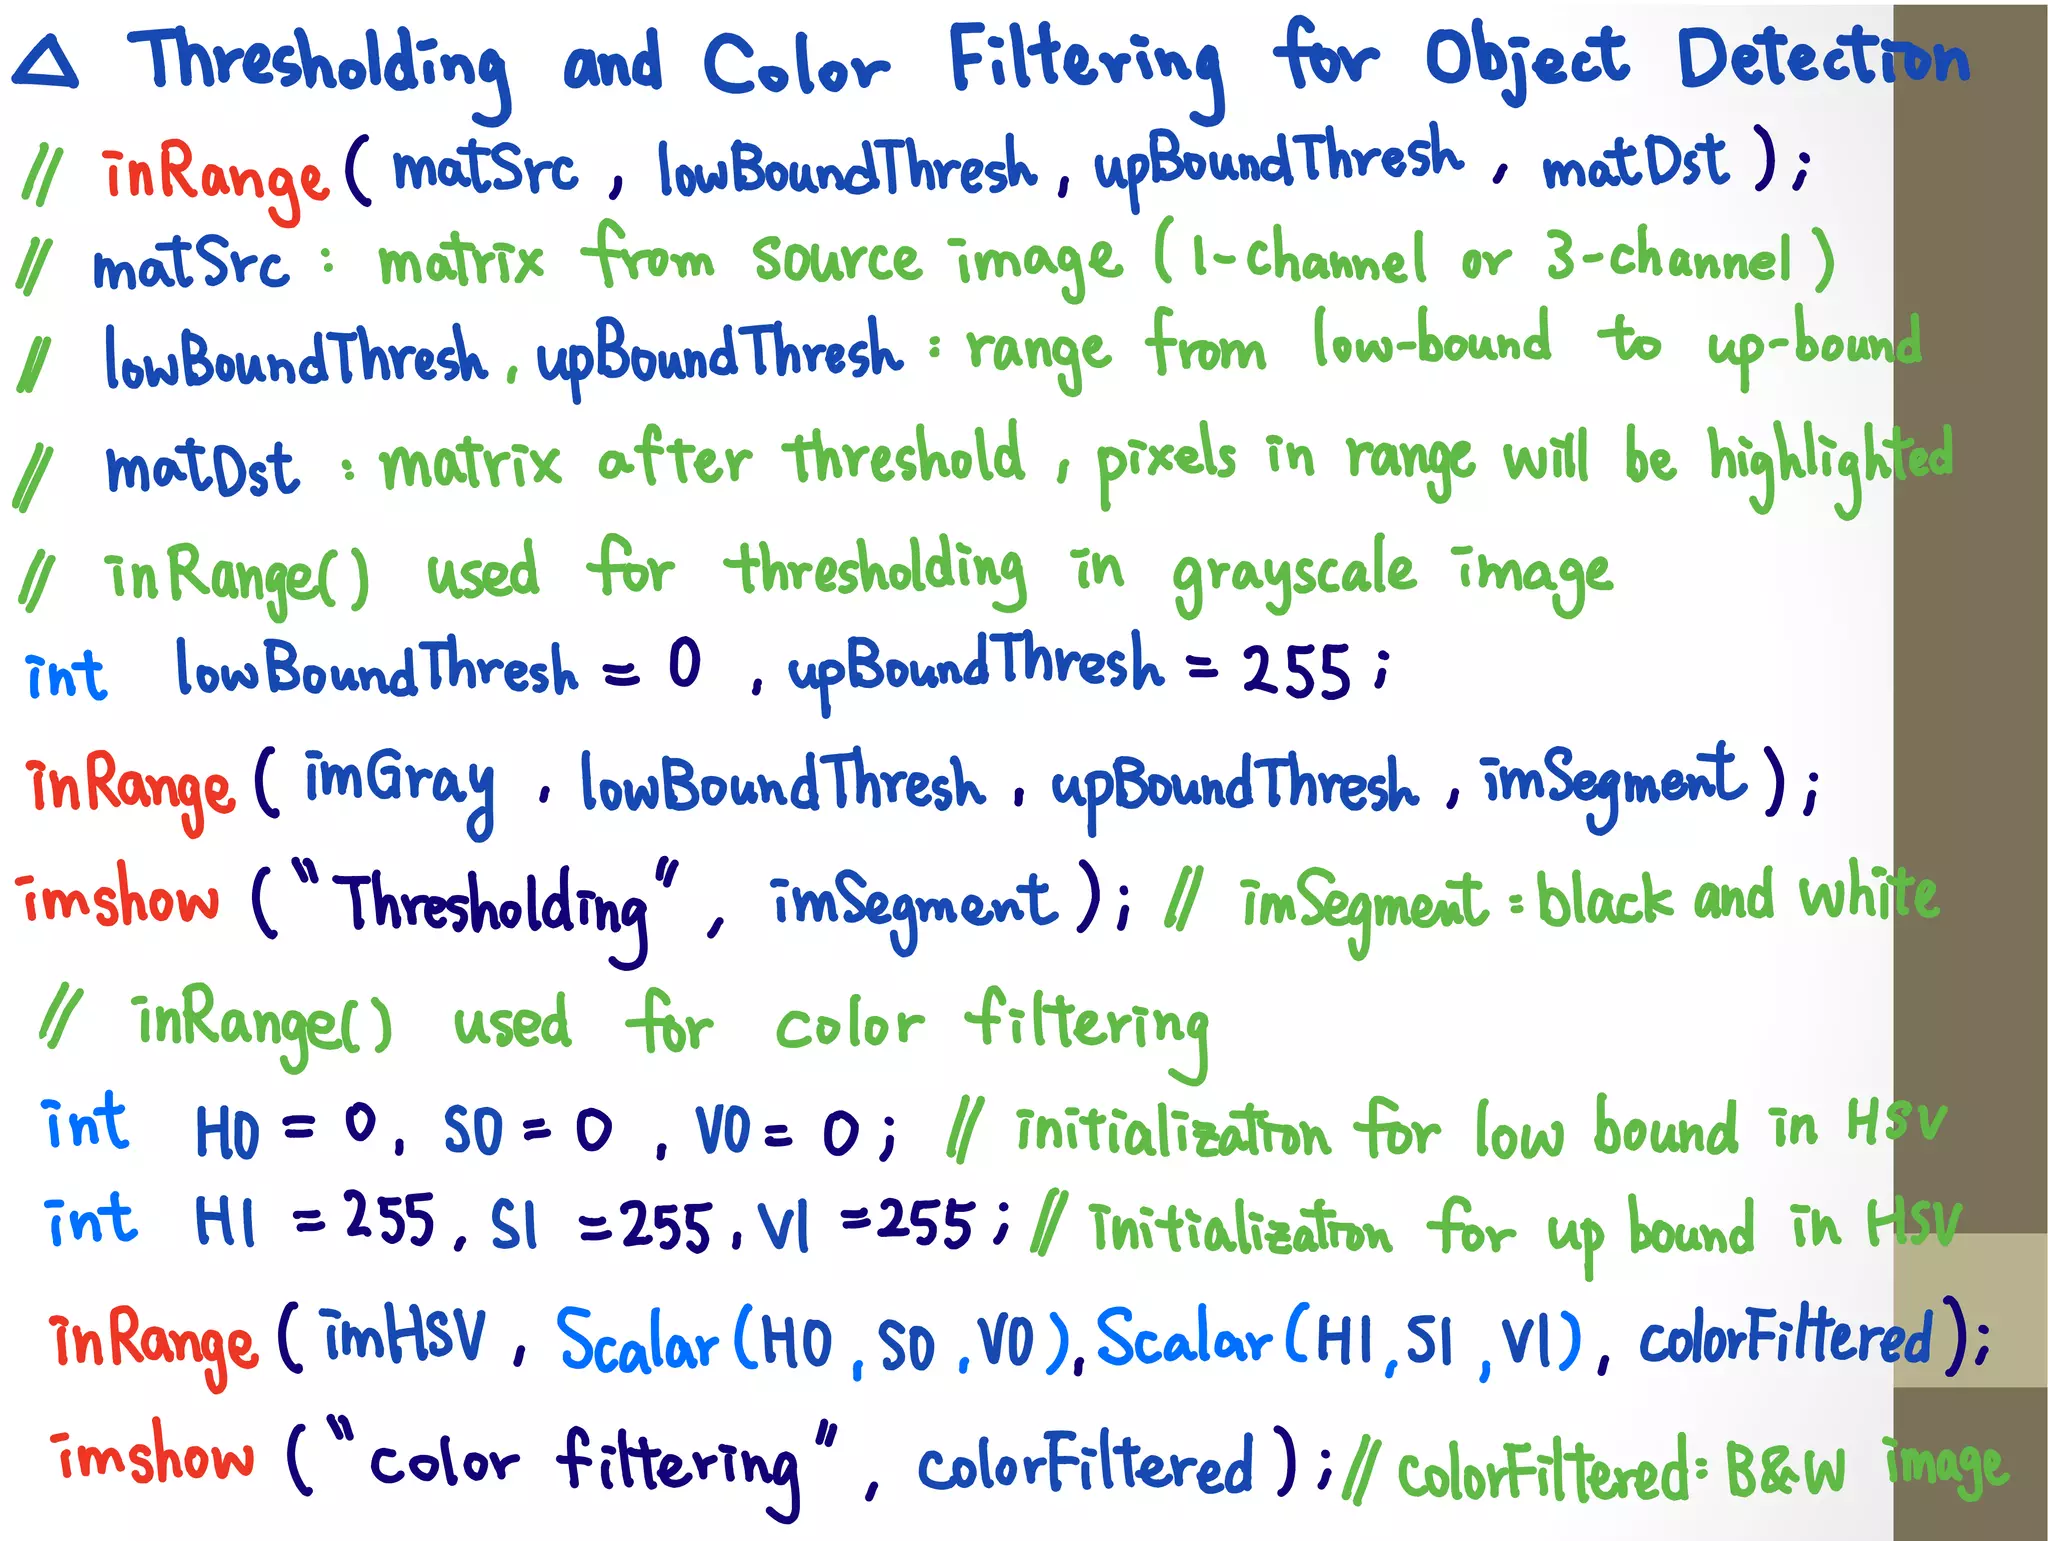 △ Thresholding and Color Filtering for Object Detection
// inRange( matSrc , lowBoundThresh, upBoundThresh , matDst );
// matSrc : matrix from source image (1-channel or 3-channel)
// lowBoundThresh, upBoundThresh : range from low-bound to up-bound
// matDst : matrix after threshold, pixels in range will be highlighted
// inRange() used for thresholding in grayscale image
int lowBoundThresh = 0 , upBoundThresh = 255 ;
inRange( imGray , lowBoundThresh , upBoundThresh , imSegment );
imshow ("Thresholding", imSegment ); // imSegment : black and white
// inRange() used for color filtering
int H0 = 0, S0 = 0 , V0 = 0; // initialization for low bound in HSV
int H1 = 255, S1 = 255, V1 = 255 ; // initialization for up bound in HSV
inRange ( imHSV , Scalar (H0 , S0 , V0 ), Scalar (H1 , S1 , V1) , colorFiltered);
imshow ("color filtering" , colorFiltered ); // colorFiltered: B&W image